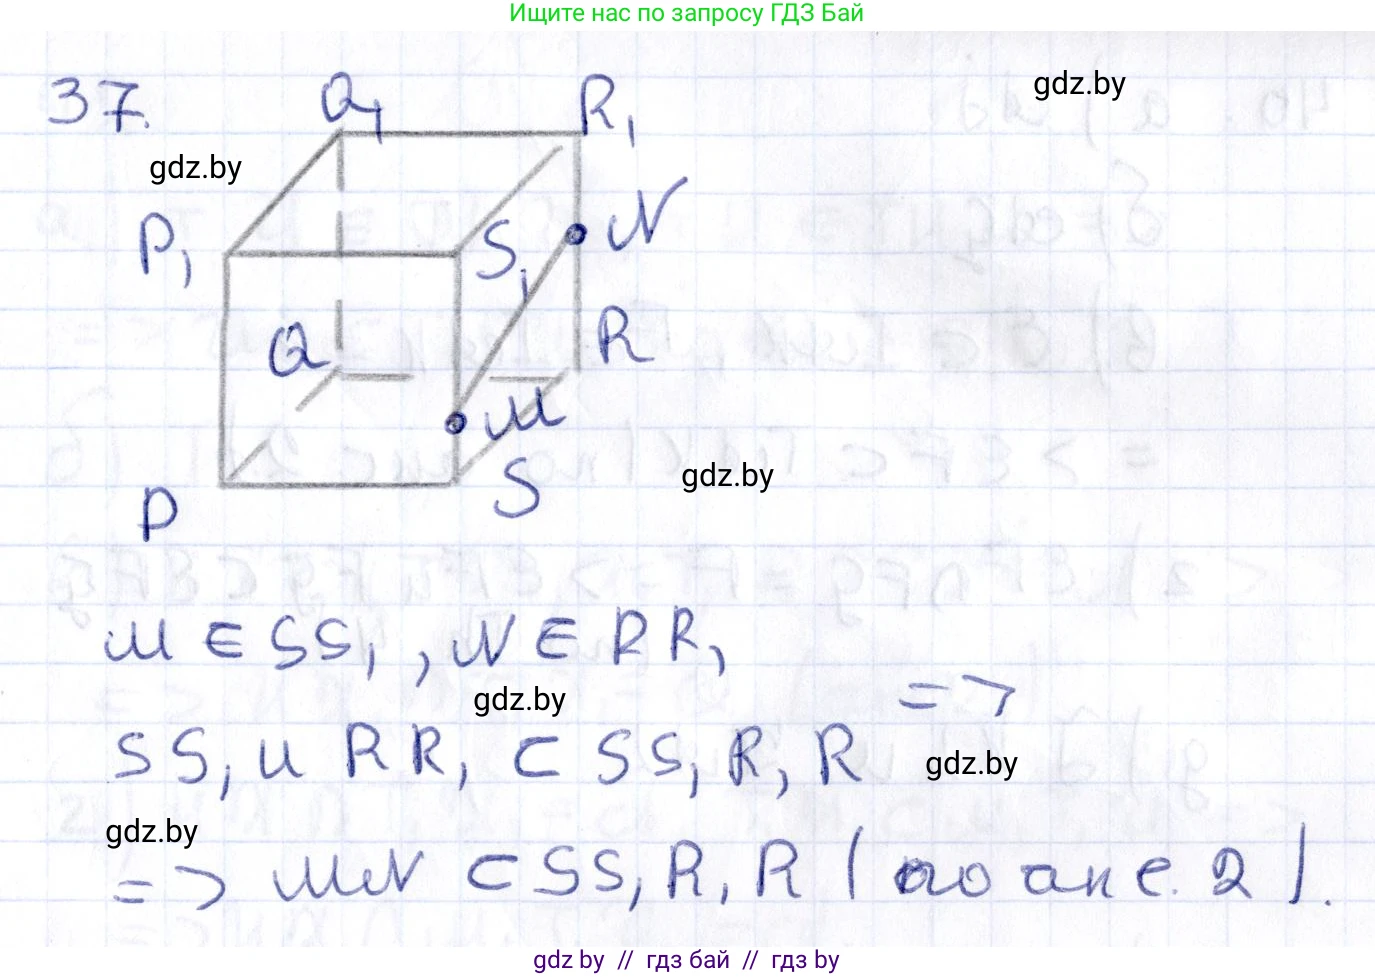 Ищите нас по запросу ГДЗ Бай
37.
Q₁ R₁
gdz.by
gdz.by
P₁ S₁ N
Q R
M
gdz.by
P S
M ∈ SS₁, N ∈ RR₁
gdz.by
=>
SS₁ и RR₁ ⊂ SS₁R₁R
gdz.by
gdz.by
=> MN ⊂ SS₁R₁R (по акс. 2).
gdz by // гдз бай // гдз by